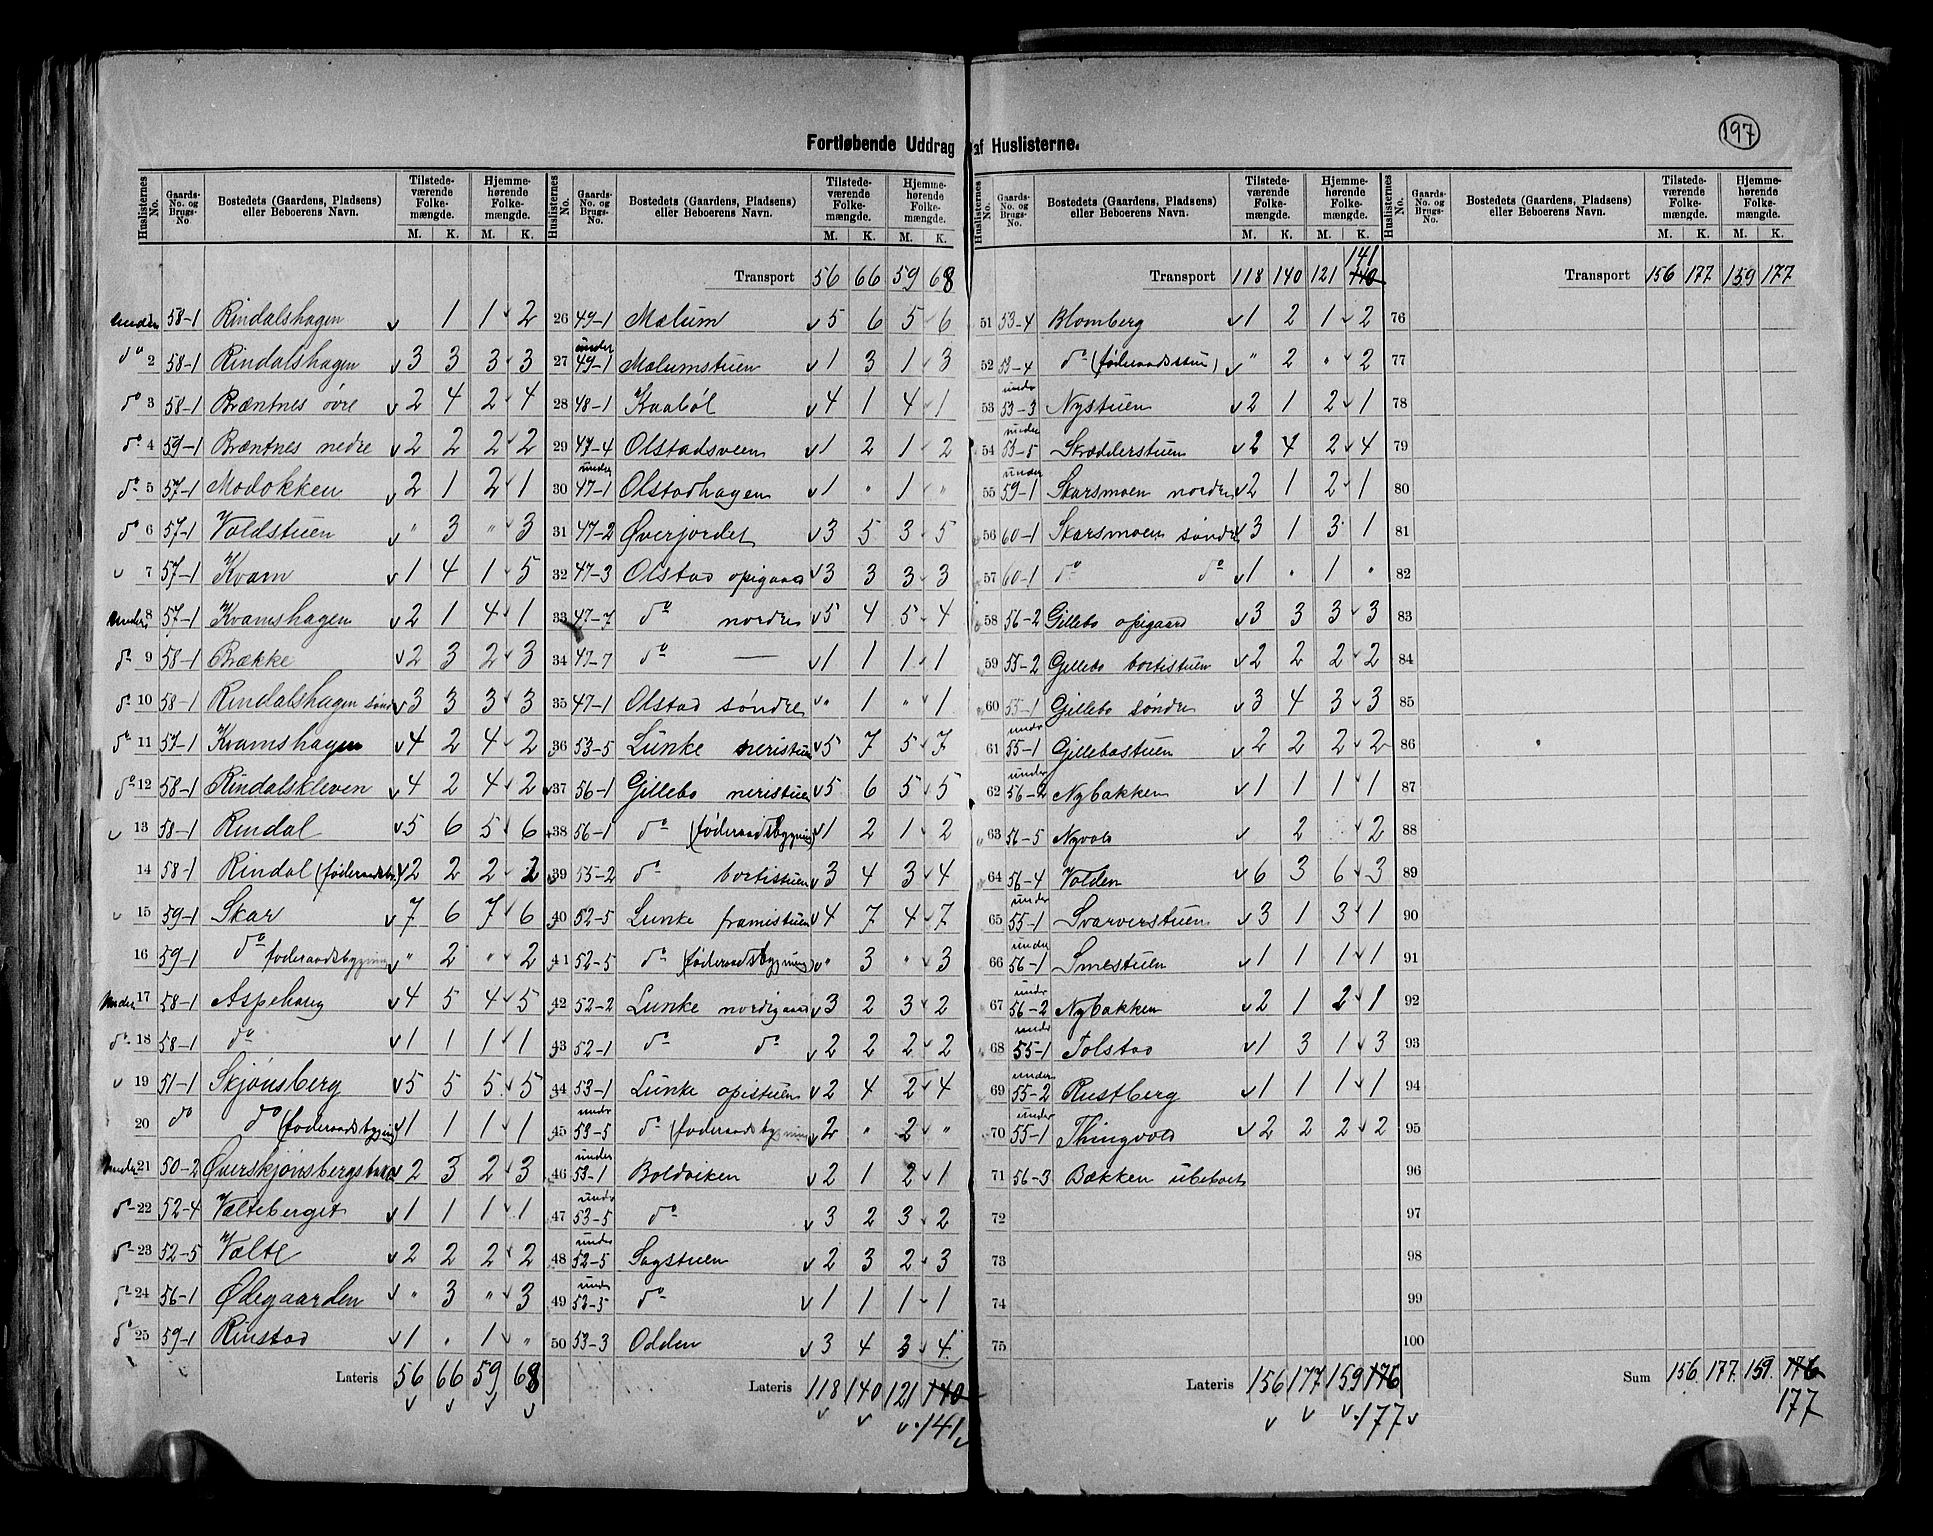 197
Fortløbende Uddrag af Huslisterne.
Huslisternes No. Gaards-No. og Brugs-No. Bostedets (Gaardens, Pladsens) eller Beboerens Navn. Tilstedeværende Folkemængde. M. K. Hjemmehørende Folkemængde. M. K.
under 58-1 Rindalshagen v 1 1 v 2
do 2 58-1 Rindalshagen v 3 3 3 v 3
do 3 58-1 Bræntnes øvre v 2 4 2 v 4
do 4 59-1 Bræntnes nedre v 2 2 2 v 2
do 5 57-1 Modokken v 2 1 2 v 1
do 6 57-1 Voldstuen v " 3 " v 3
v 7 57-1 Kvam v 1 4 1 v 5
under 8 57-1 Kvamshagen v 2 1 4 v 1
do 9 58-1 Brække v 2 3 2 v 3
do 10 58-1 Rindalshagen sønd v 3 3 3 v 3
do 11 57-1 Kvamshagen v 4 2 4 v 2
do 12 58-1 Rindalskleven v 4 2 4 v 2
v 13 58-1 Rindal v 5 6 5 v 6
14 58-1 Rindal (føderaadsby.) v 2 2 2 v 2
v 15 59-1 Skar v 7 6 7 v 6
16 59-1 do føderaadsbygning v " 2 " v 2
under 17 58-1 Aspehaug v 4 5 4 v 5
do 18 58-1 do v 1 1 1 v 1
v 19 51-1 Skjønsberg v 5 5 5 v 5
20 do do (føderaadsbygning) v 1 1 1 v 1
under 21 50-2 Øverskjønsbergsbak v 2 3 2 v 3
do 22 52-4 Vælteberget v 1 1 1 v 1
do 23 52-5 Vælte v 2 2 2 v 2
do 24 56-1 Ødegaarden v " 3 " v 3
do 25 59-1 Rinstad v 1 " 1 v "
Lateris 56 66 59 68
v v v v
Huslisternes No. Gaards-No. og Brugs-No. Bostedets (Gaardens, Pladsens) eller Beboerens Navn. Tilstedeværende Folkemængde. M. K. Hjemmehørende Folkemængde. M. K.
Transport 56 66 59 68
26 49-1 Mælum v 5 6 5 v 6
27 under 49-1 Mælumstuen v 1 3 1 v 3
28 48-1 Kaabøl v 4 1 4 v 1
29 47-4 Olstadsveen v 1 2 1 v 2
30 under 47-1 Olstadhagen v 1 " 1 v "
31 47-2 Øverjordet v 3 5 3 v 5
32 47-3 Olstad opigaard v 3 3 3 v 3
33 47-7 do nordre v 5 4 5 v 4
34 47-7 do — v 1 1 1 v 1
35 47-1 Olstad søndre v " 1 " v 1
36 53-5 Lunke neristuen v 5 7 5 v 7
37 56-1 Gillebo neristuen v 5 6 5 v 5
38 56-1 do (føderaadsbygning) v 1 2 1 v 2
39 55-2 do bortistuen v 3 4 3 v 4
40 52-5 Lunke framistuen v 4 7 4 v 7
41 52-5 do (føderaadsbygning) v " 3 " v 3
42 52-2 Lunke nordigaard v 3 2 3 v 2
43 52-1 do do v 2 2 2 v 2
44 53-1 Lunke opistuen v 2 4 2 v 4
45 under 53-5 do (føderaadsbygning v 2 " 2 v "
46 under 53-1 Boldviken v 2 1 2 v 1
47 under 53-5 do v 3 2 3 v 2
48 under 52-5 Sagstuen v 2 3 2 v 3
49 under 52-5 do v 1 1 1 v 1
50 53-3 Odden v 3 4 3 v 4
Lateris 118 140 121 140
v v v 141 v
Huslisternes No. Gaards-No. og Brugs-No. Bostedets (Gaardens, Pladsens) eller Beboerens Navn. Tilstedeværende Folkemængde. M. K. Hjemmehørende Folkemængde. M. K.
141
Transport 118 140 121 140
51 53-4 Blomberg v 1 2 1 v 2
52 53-4 do (føderaadsstue) v " 2 " v 2
53 under 53-3 Nystuen v 2 1 2 v 1
54 under 53-5 Skrædderstuen v 2 4 2 v 4
55 under 59-1 Skarsmoen nordre v 2 1 2 v 1
56 60-1 Skarsmoen søndre v 3 1 3 1
57 60-1 do do v 1 " 1 "
58 56-2 Gillebo opigaard v 3 3 3 v 3
59 55-2 Gillebo bortistuen v 2 2 2 v 2
60 55-1 Gillebo søndre v 3 4 3 v 3
61 under 55-1 Gillebostuen v 2 2 2 v 2
62 under 56-2 Nybakken v 1 1 1 v 1
63 56-5 Nyvold v 2 v 2
64 56-4 Volden v 6 3 6 v 3
65 under 55-1 Svarverstuen v 3 1 3 v 1
66 under 56-1 Smestuen v 1 1 1 v 1
67 under 56-2 Nybakken v 2 1 2 v 1
68 under 55-1 Tolstad v 1 3 1 v 3
69 under 55-2 Rustberg v 1 1 1 v 1
70 under 55-1 Thingvold v 2 2 2 v 2
71 56-3 Bækken ubeboet
72
73
74
75
Lateris 156 177 159 176
v v v 177 v
Huslisternes No. Gaards-No. og Brugs-No. Bostedets (Gaardens, Pladsens) eller Beboerens Navn. Tilstedeværende Folkemængde. M. K. Hjemmehørende Folkemængde. M. K.
Transport 156 177 159 177
76
77
78
79
80
81
82
83
84
85
86
87
88
89
90
91
92
93
94
95
96
97
98
99
100
Sum 156 177 159 176
177